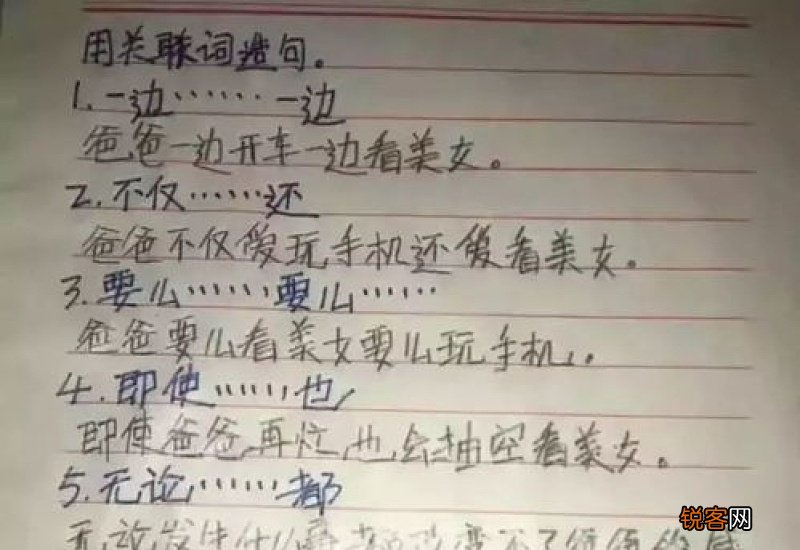 用关联词造句。
1.一边……一边
爸爸一边开车一边看美女。
2.不仅……还
爸爸不仅爱玩手机还爱看美女。
3.要么……要么……
爸爸要么看美女要么玩手机。
4.即使……也
即使爸爸再忙,也会抽空看美女。
5.无论……都
无论发生什么事都改变不了爸爸
锐客网